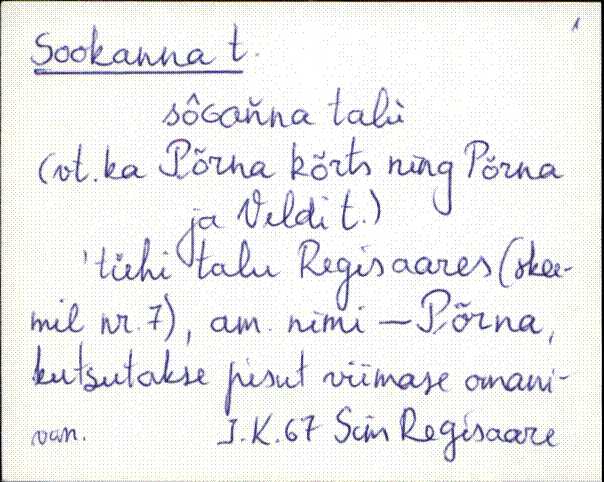 1
Sookanna t.
sôGan̆na talù
(vt. ka Põrna kõrts ning Põrna
ja Veldi t.)
'tǖhi talu Regisaares (skee-
mil nr. 7), am. nimi — Põrna,
kutsutakse pisut viimase omani-
van. I.K. 67 Siin Regisaare